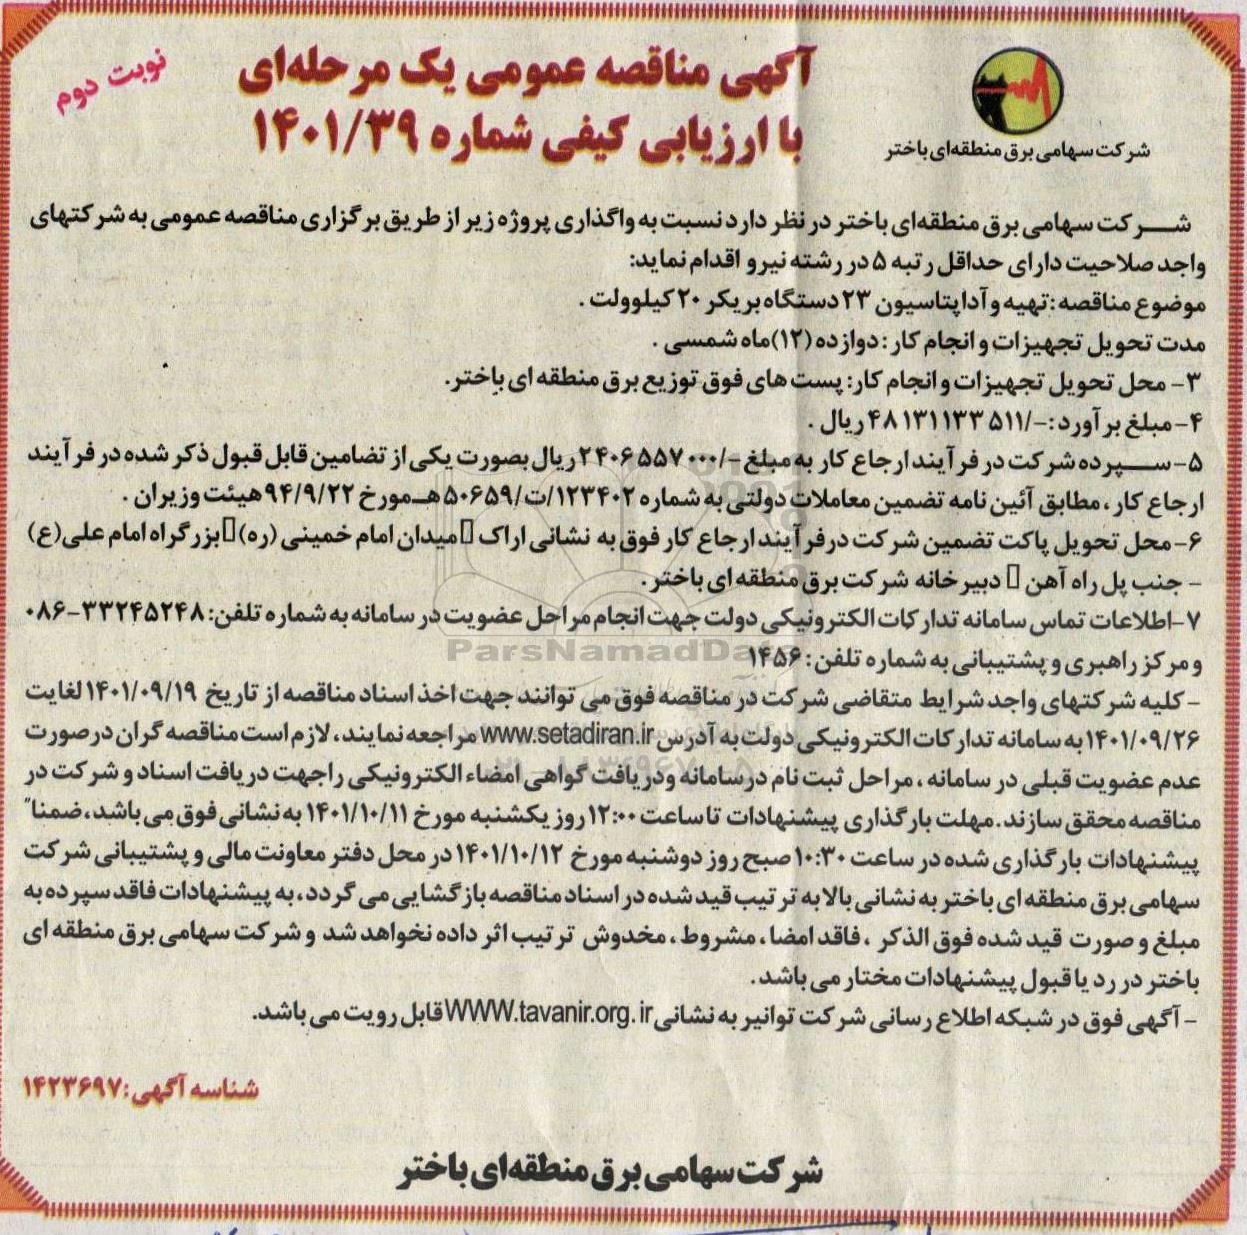 آگهی مناقصه عمومی یک مرحله‌ای
با ارزیابی کیفی شماره ۱۴۰۱/۳۹
نوبت دوم
شرکت سهامی برق منطقه‌ای باختر
شرکت سهامی برق منطقه‌ای باختر در نظر دارد نسبت به واگذاری پروژه زیر از طریق برگزاری مناقصه عمومی به شرکتهای
واجد صلاحیت دارای حداقل رتبه ۵ در رشته نیرو اقدام نماید:
موضوع مناقصه: تهیه و آداپتاسیون ۲۳ دستگاه بریکر ۲۰ کیلوولت.
مدت تحویل تجهیزات و انجام کار: دوازده (۱۲) ماه شمسی.
۳- محل تحویل تجهیزات و انجام کار: پست های فوق توزیع برق منطقه ای باختر.
۴- مبلغ برآورد: -/۴۸۱۳۱۱۳۳۵۱۱ ریال.
۵- سپرده شرکت در فرآیند ارجاع کار به مبلغ -/۲۴۰۶۵۵۷۰۰۰ ریال بصورت یکی از تضامین قابل قبول ذکر شده در فرآیند
ارجاع کار، مطابق آئین نامه تضمین معاملات دولتی به شماره ۱۲۳۴۰۲/ت/۵۰۶۵۹هـ مورخ ۹۴/۹/۲۲ هیئت وزیران.
۶- محل تحویل پاکت تضمین شرکت درفرآیند ارجاع کار فوق به نشانی اراک میدان امام خمینی (ره) بزرگراه امام علی(ع)
- جنب پل راه آهن دبیرخانه شرکت برق منطقه ای باختر.
۷- اطلاعات تماس سامانه تدارکات الکترونیکی دولت جهت انجام مراحل عضویت در سامانه به شماره تلفن: ۳۳۲۴۵۲۴۸-۰۸۶
و مرکز راهبری و پشتیبانی به شماره تلفن: ۱۴۵۶
ParsNamadData
- کلیه شرکتهای واجد شرایط متقاضی شرکت در مناقصه فوق می توانند جهت اخذ اسناد مناقصه از تاریخ ۱۴۰۱/۰۹/۱۹ لغایت
۱۴۰۱/۰۹/۲۶ به سامانه تدارکات الکترونیکی دولت به آدرس www.setadiran.ir مراجعه نمایند، لازم است مناقصه گران در صورت
عدم عضویت قبلی در سامانه، مراحل ثبت نام درسامانه ودریافت گواهی امضاء الکترونیکی را جهت دریافت اسناد و شرکت در
مناقصه محقق سازند. مهلت بارگذاری پیشنهادات تا ساعت ۱۲:۰۰ روز یکشنبه مورخ ۱۴۰۱/۱۰/۱۱ به نشانی فوق می باشد، ضمنا"
پیشنهادات بارگذاری شده در ساعت ۱۰:۳۰ صبح روز دوشنبه مورخ ۱۴۰۱/۱۰/۱۲ در محل دفتر معاونت مالی و پشتیبانی شرکت
سهامی برق منطقه ای باختر به نشانی بالا به ترتیب قید شده در اسناد مناقصه بازگشایی می گردد، به پیشنهادات فاقد سپرده به
مبلغ و صورت قید شده فوق الذکر، فاقد امضا، مشروط، مخدوش ترتیب اثر داده نخواهد شد و شرکت سهامی برق منطقه ای
باختر در رد یا قبول پیشنهادات مختار می باشد.
- آگهی فوق در شبکه اطلاع رسانی شرکت توانیر به نشانی WWW.tavanir.org.ir قابل رویت می باشد.
شناسه آگهی: ۱۴۲۳۶۹۷
شرکت سهامی برق منطقه‌ای باختر